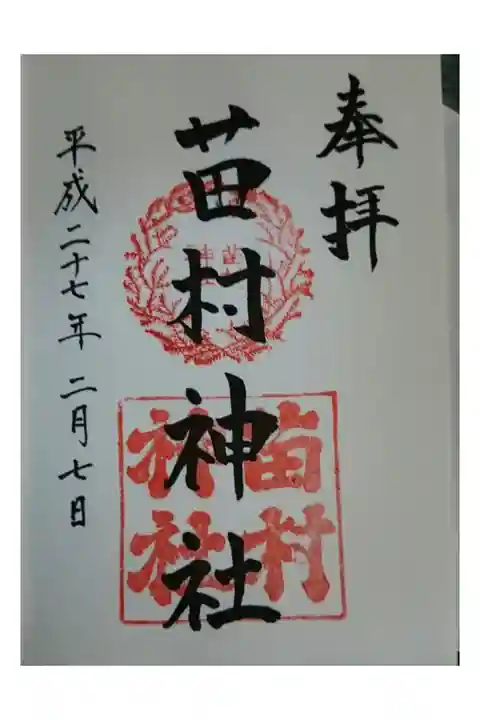 奉拝
苗村神社
苗村
神社
平成二十七年二月七日